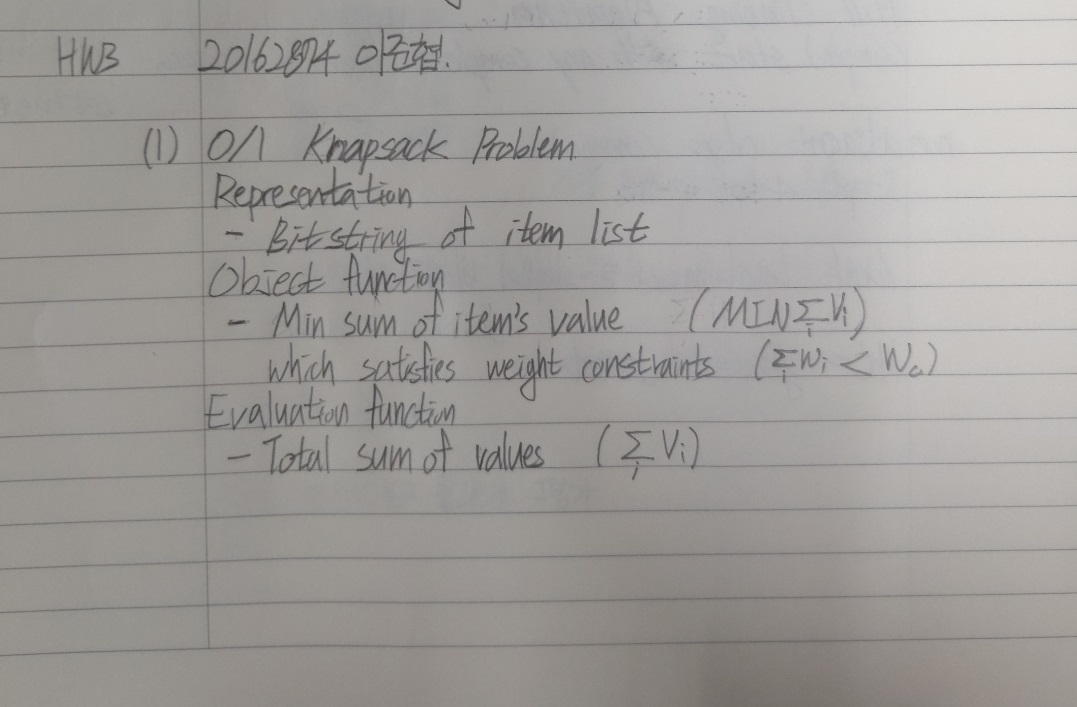 HW3 20162874 이준협.
(1) 0/1 Knapsack Problem
Representation
- Bitstring of item list
Object function
- Min sum of item's value (MIN∑Vi)
which satisfies weight constraints (∑Wi < Wc)
Evaluation function
- Total sum of values (∑Vi)